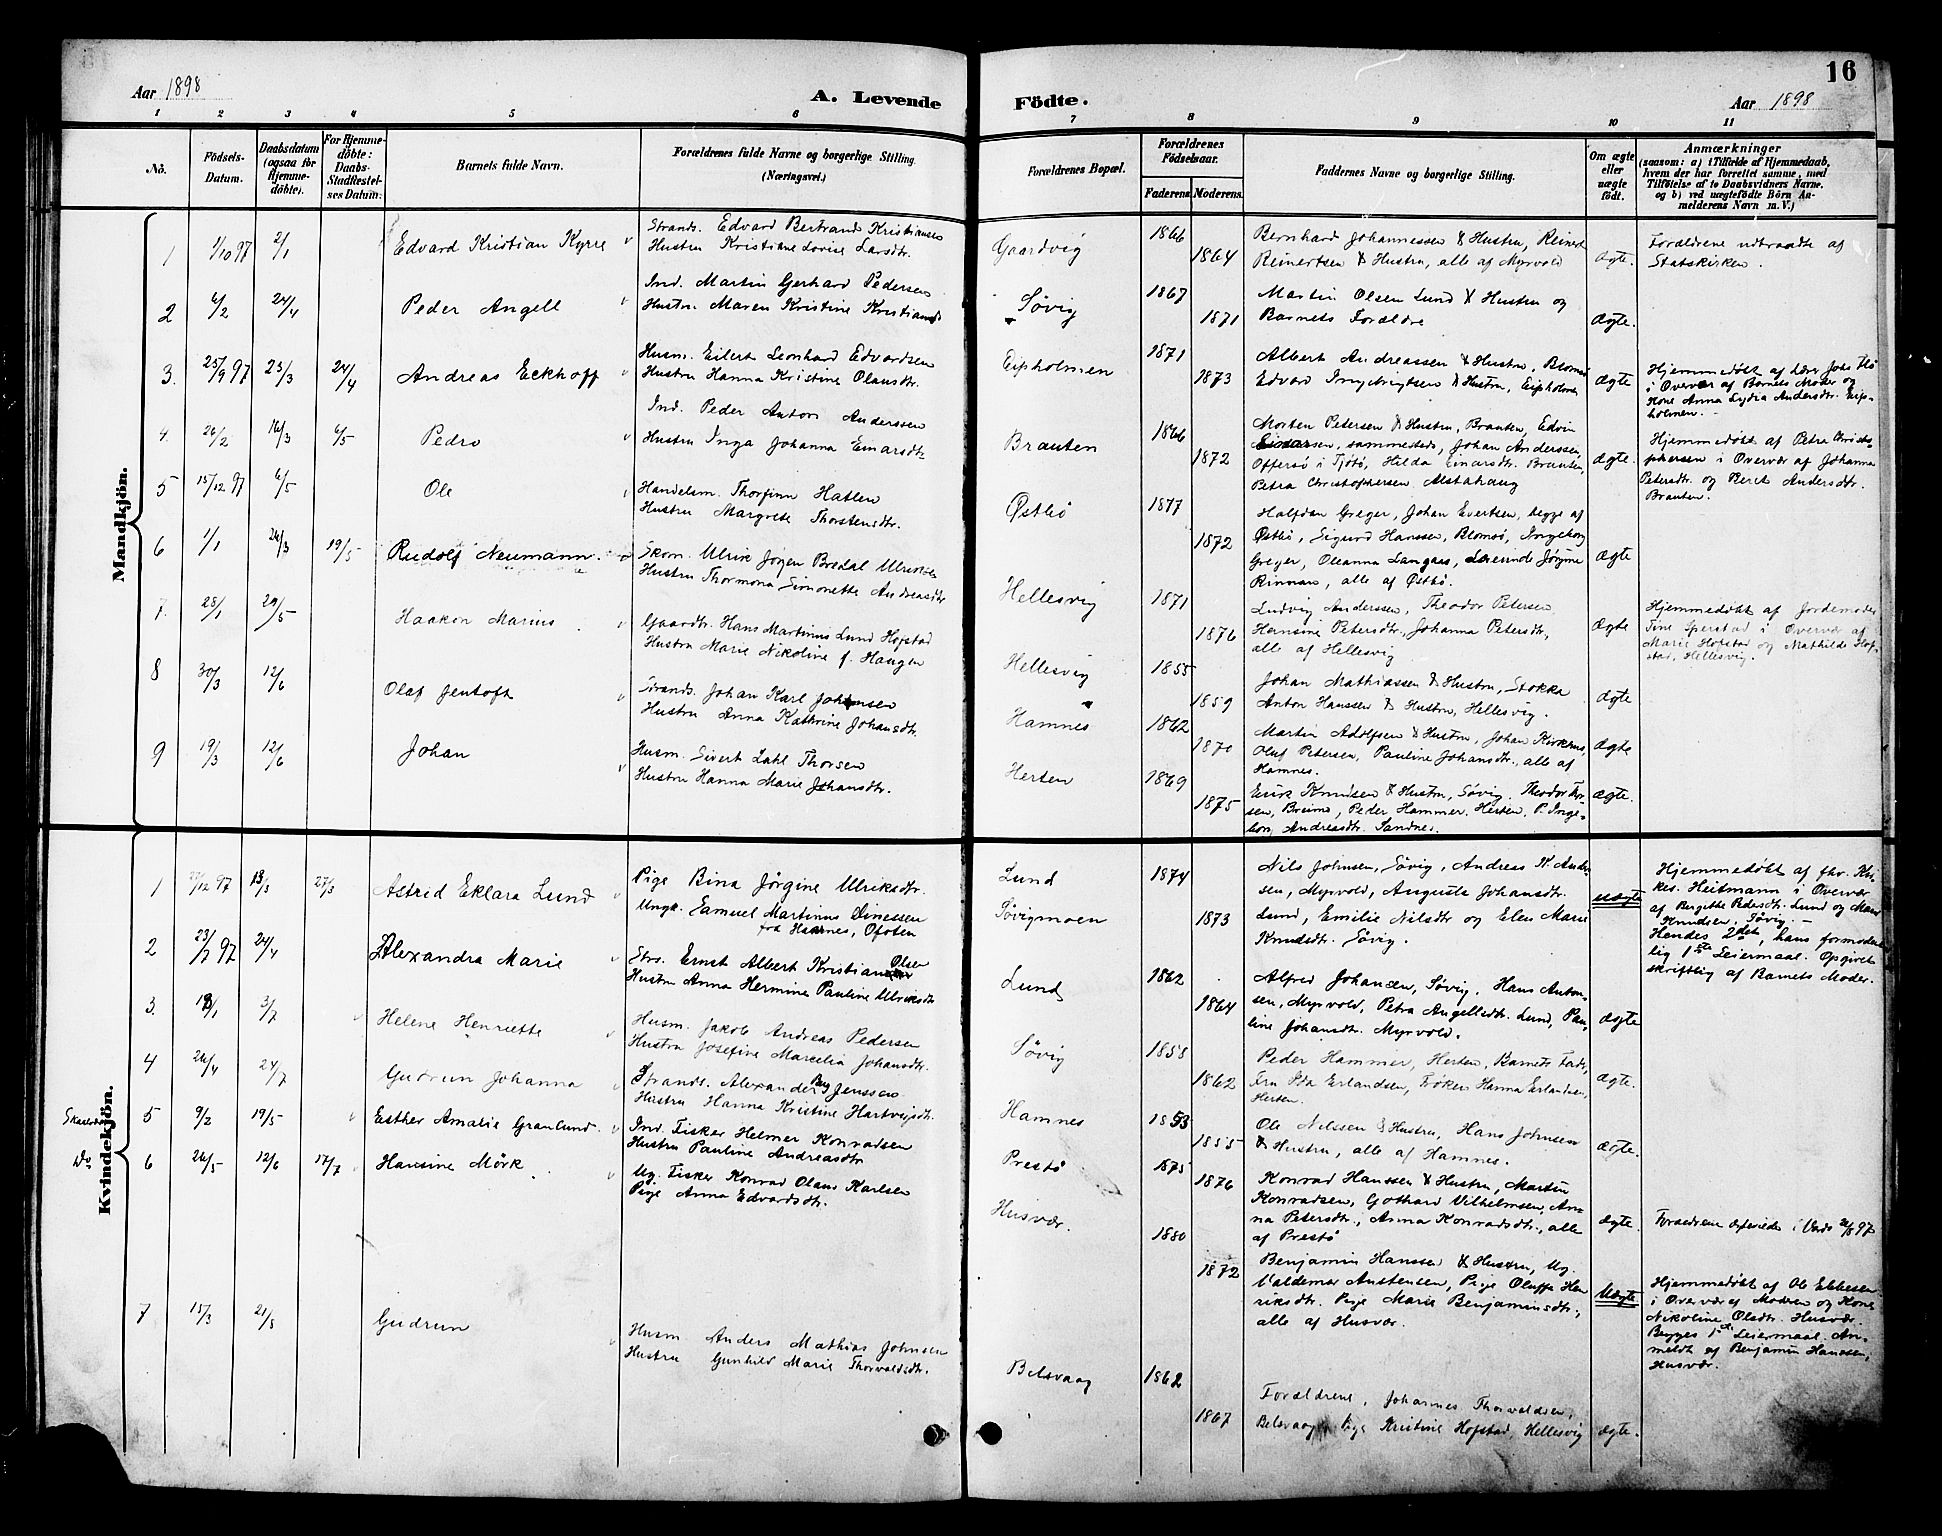 16
Aar 1898
A. Levende
Födte.
Aar 1898
1 2 3 4 5 6 7 8 9 10 11
No.
Födsels-Datum.
Daabsdatum (ogsaa för Hjemmedöbte).
For Hjemmedöbte: Daabs-Stadfæstelses Datum.
Barnets fulde Navn.
Forældrenes fulde Navne og borgerlige Stilling. (Næringsvei.)
Forældrenes Bopæl.
Forældrenes Födselsaar.
Faderens. Moderens.
Faddernes Navne og borgerlige Stilling.
Om ægte eller uægte födt.
Anmærkninger
(saasom: a) i Tilfælde af Hjemmedaab, hvem der har forrettet samme, med Tilföielse af to Daabsvidners Navne, og b) ved uægtefödte Börn Anmelderens Navn m. V.)
Mandkjön.
1 1/10 97 2/1 Edvard Kristian Kyrre
Strands. Edvard Bertrand Kristiansen
Hustru Kristiane Lovise Larsdtr.
Gaardvig 1866 1864
Bernhard Johannessen & Hustru, Reinert
Reinertsen & Hustru, alle af Myrvold
ægte.
Forældrene udtraadte af
Statskirken.
2 6/2 24/4 Peder Angell
Ind. Martin Gerhard Pedersen
Hustru Maren Kristine Kristiansd
Søvig 1867 1871
Martin Olsen Lund & Hustru og
Barnets Forældre
ægte.
3. 25/9 97 23/3 24/4 Andreas Eckhoff
Husm. Eilert Leonhard Edvardsen
Hustru Hanna Kristine Olausdtr.
Eipholmen 1871 1873
Albert Andreassen & Hustru, Blomsø
Edvard Ingebrigtsen & Hustru, Eipholmen
ægte
Hjemmedøbt af Lærer Johs Flø
i Overvær af Barnets Moder og
Kone Anna Lydia Andersdtr. Eip-
holmen.
4. 26/2 16/3 6/5 Pedro
Ind. Peder Anton Anderssen
Hustru Inga Johanna Einarsdtr
Brauten 1866 1872
Morten Petersen & Hustru, Brauten, Edvin
Einarsen, sammesteds, Johan Anderssen,
Offersø i Tjøtø, Hilda Einarsdtr. Brauten,
Petra Christophersen Alstahaug
ægte.
Hjemmedøbt af Petra Christo-
phersen i Overvær af Johanna
Petersdtr. og Berit Andersdtr.
Brauten.
5 15/12 97 6/5 Ole
Handelsm. Thorfinn Hatlen
Hustru Margrete Thorstensdtr.
Østbø 1877 1872
Halfdan Greger, Johan Evertsen, begge af
Østbø, Sigurd Hanssen, Blomsø, Ingeborg
Greger, Oleanna Langaas, Lærerinde Jørgine
Rinnan, alle af Østbø.
ægte
6 1/1 26/3 19/5 Rudolf Neumann
Skom. Ulrik Jørgen Bredal Ulriksen
Hustru Thormona Simonette Andreasdtr
Hellesvig 1871 1876
Ludvig Anderssen, Theodor Petersen
Hansine Petersdtr., Johanna Petersdtr,
alle af Hellesvig
ægte
Hjemmedøbt af Jordemoder
Tine Sperstad i Overvær af
Marie Hofstad og Mathilde Hof-
stad, Hellesvig.
7. 28/1 29/5 Haakon Marius
Gaardbr. Hans Martinus Lund Hofstad
Hustru Marie Nikoline f. Haugen
Hellesvig 1855 1859
Johan Mathiassen & Hustru, Stokka
Anton Hanssen & Hustru, Hellesvig.
ægte
8 30/3 12/6 Olaf Jentoft
Strands. Johan Karl Johansen
Hustru Anna Kathrine Johansdtr.
Hamnes 1862 1870
Martin Adolfsen & Hustru, Johan Kirkhus,
Oluf Petersen, Pauline Johansdtr., alle af
Hamnes.
ægte
9 19/3 12/6 Johan
Husm. Sivert Dahl Thorsen
Hustru Hanna Marie Johansdtr.
Herten 1869 1875
Erik Knudsen & Hustru, Søvig. Theodor Thor-
sen, Breimo, Peder Hammer. Herten, P. Inge-
bor, Andreasdtr. Sandnes.
ægte.
Kvindekjön.
1 27/12 97 13/3 27/3 Astrid Eklara Lund
Pige Bina Jörgine Ulriksdtr.
Ungk. Samuel Martinus Dinessen
fra Hamnes, Ofoten
Lund 1874
Søvigmoen 1873
Nils Johnsen, Søvig, Andreas K. Ander-
sen, Myrvold, Augusta Johansdtr.
Lund, Emilie Nilsdtr og Elen Marie
Knudsdtr. Søvig.
uægte
Hjemmedøbt af fhv. Kir-
kes. Heitmann i Overvær
af Birgitte Pedersdtr. Lund og Maren
Knudsen, Søvig. –
Hendes 2det, hans formodent-
lig 1ste Leiermaal. Opgivet
skriftlig af Barnets Moder.
2 23/7 97 24/4 Alexandra Marie
Strs. Ernst Albert Kristian Olsen
Hustru Anna Hermine Pauline Ulriksdtr
Lund 1862 1864
Alfred Johansen, Søvig. Hans Anton-
sen, Myrvold, Petra Angellsdtr. Lund, Pau-
line Johansdtr. Myrvold.
ægte
3. 3/7 Helene Henriette
Husm. Jakob Andreas Pedersen
Hustru Josefine Marcelia Johansdtr.
Søvig 1858 1862
Peder Hammer, Herten, Barnets Fader,
Fru Ida Erlandsen, Frøken Hanna Erlandsen,
Herten.
ægte.
4 26/4 24/7 Gudrun Johanna
Strands. Alexander Berg Jenssen
Hustru Hanna Kristine Hartvigsdtr.
Hamnes 1853 1855
Ole Nilssen & Hustru, Hans Johnsen
& Hustru, alle af Hamnes.
ægte.
5 9/2 19/5 Esther Amalie Granlund.
Ind. Fisker Helmer Konradsen
Hustru Pauline Andreasdtr
Prestø 1875 1876
Konrad Hanssen & Hustru, Martin
Konradsen, Gothard Vilhelmsen, An-
na Petersdtr., Anna Konradsdtr., alle
af Prestø
ægte.
Forældrene ægteviede i Vardø 97
Do
6 26/5 12/6 17/7 Hansine Mörk
Ug. Fisker Konrad Olaus Karlsen
Pige Anna Edvardsdtr.
Husvær. 1880 1872
Benjamin Hanssen & Hustru, Ug.
Valdemar Austensen, Pige Oluffa Hen-
riksdtr. Pige Marie Benjaminsdtr.,
alle af Husvær.
Uægte
Hjemmedøbt af Ole Ebbesen
i Overvær af Moderen og Kone
Nikoline Olsdtr. Husvær.
Begges 1ste Leiermaal. An-
meldt af Benjamin Hanssen,
Husvær.
7 15/3 21/8 Gudrun
Husm. Anders Mathias Johnsen
Hustru Gunhild Marie Thorvaldsdtr.
Belsvaag 1862 1867
Forældrene, Johannes Thorvaldsen,
Belsvaag, Pige Kristine Hofstad, Hellesvig
ægte.